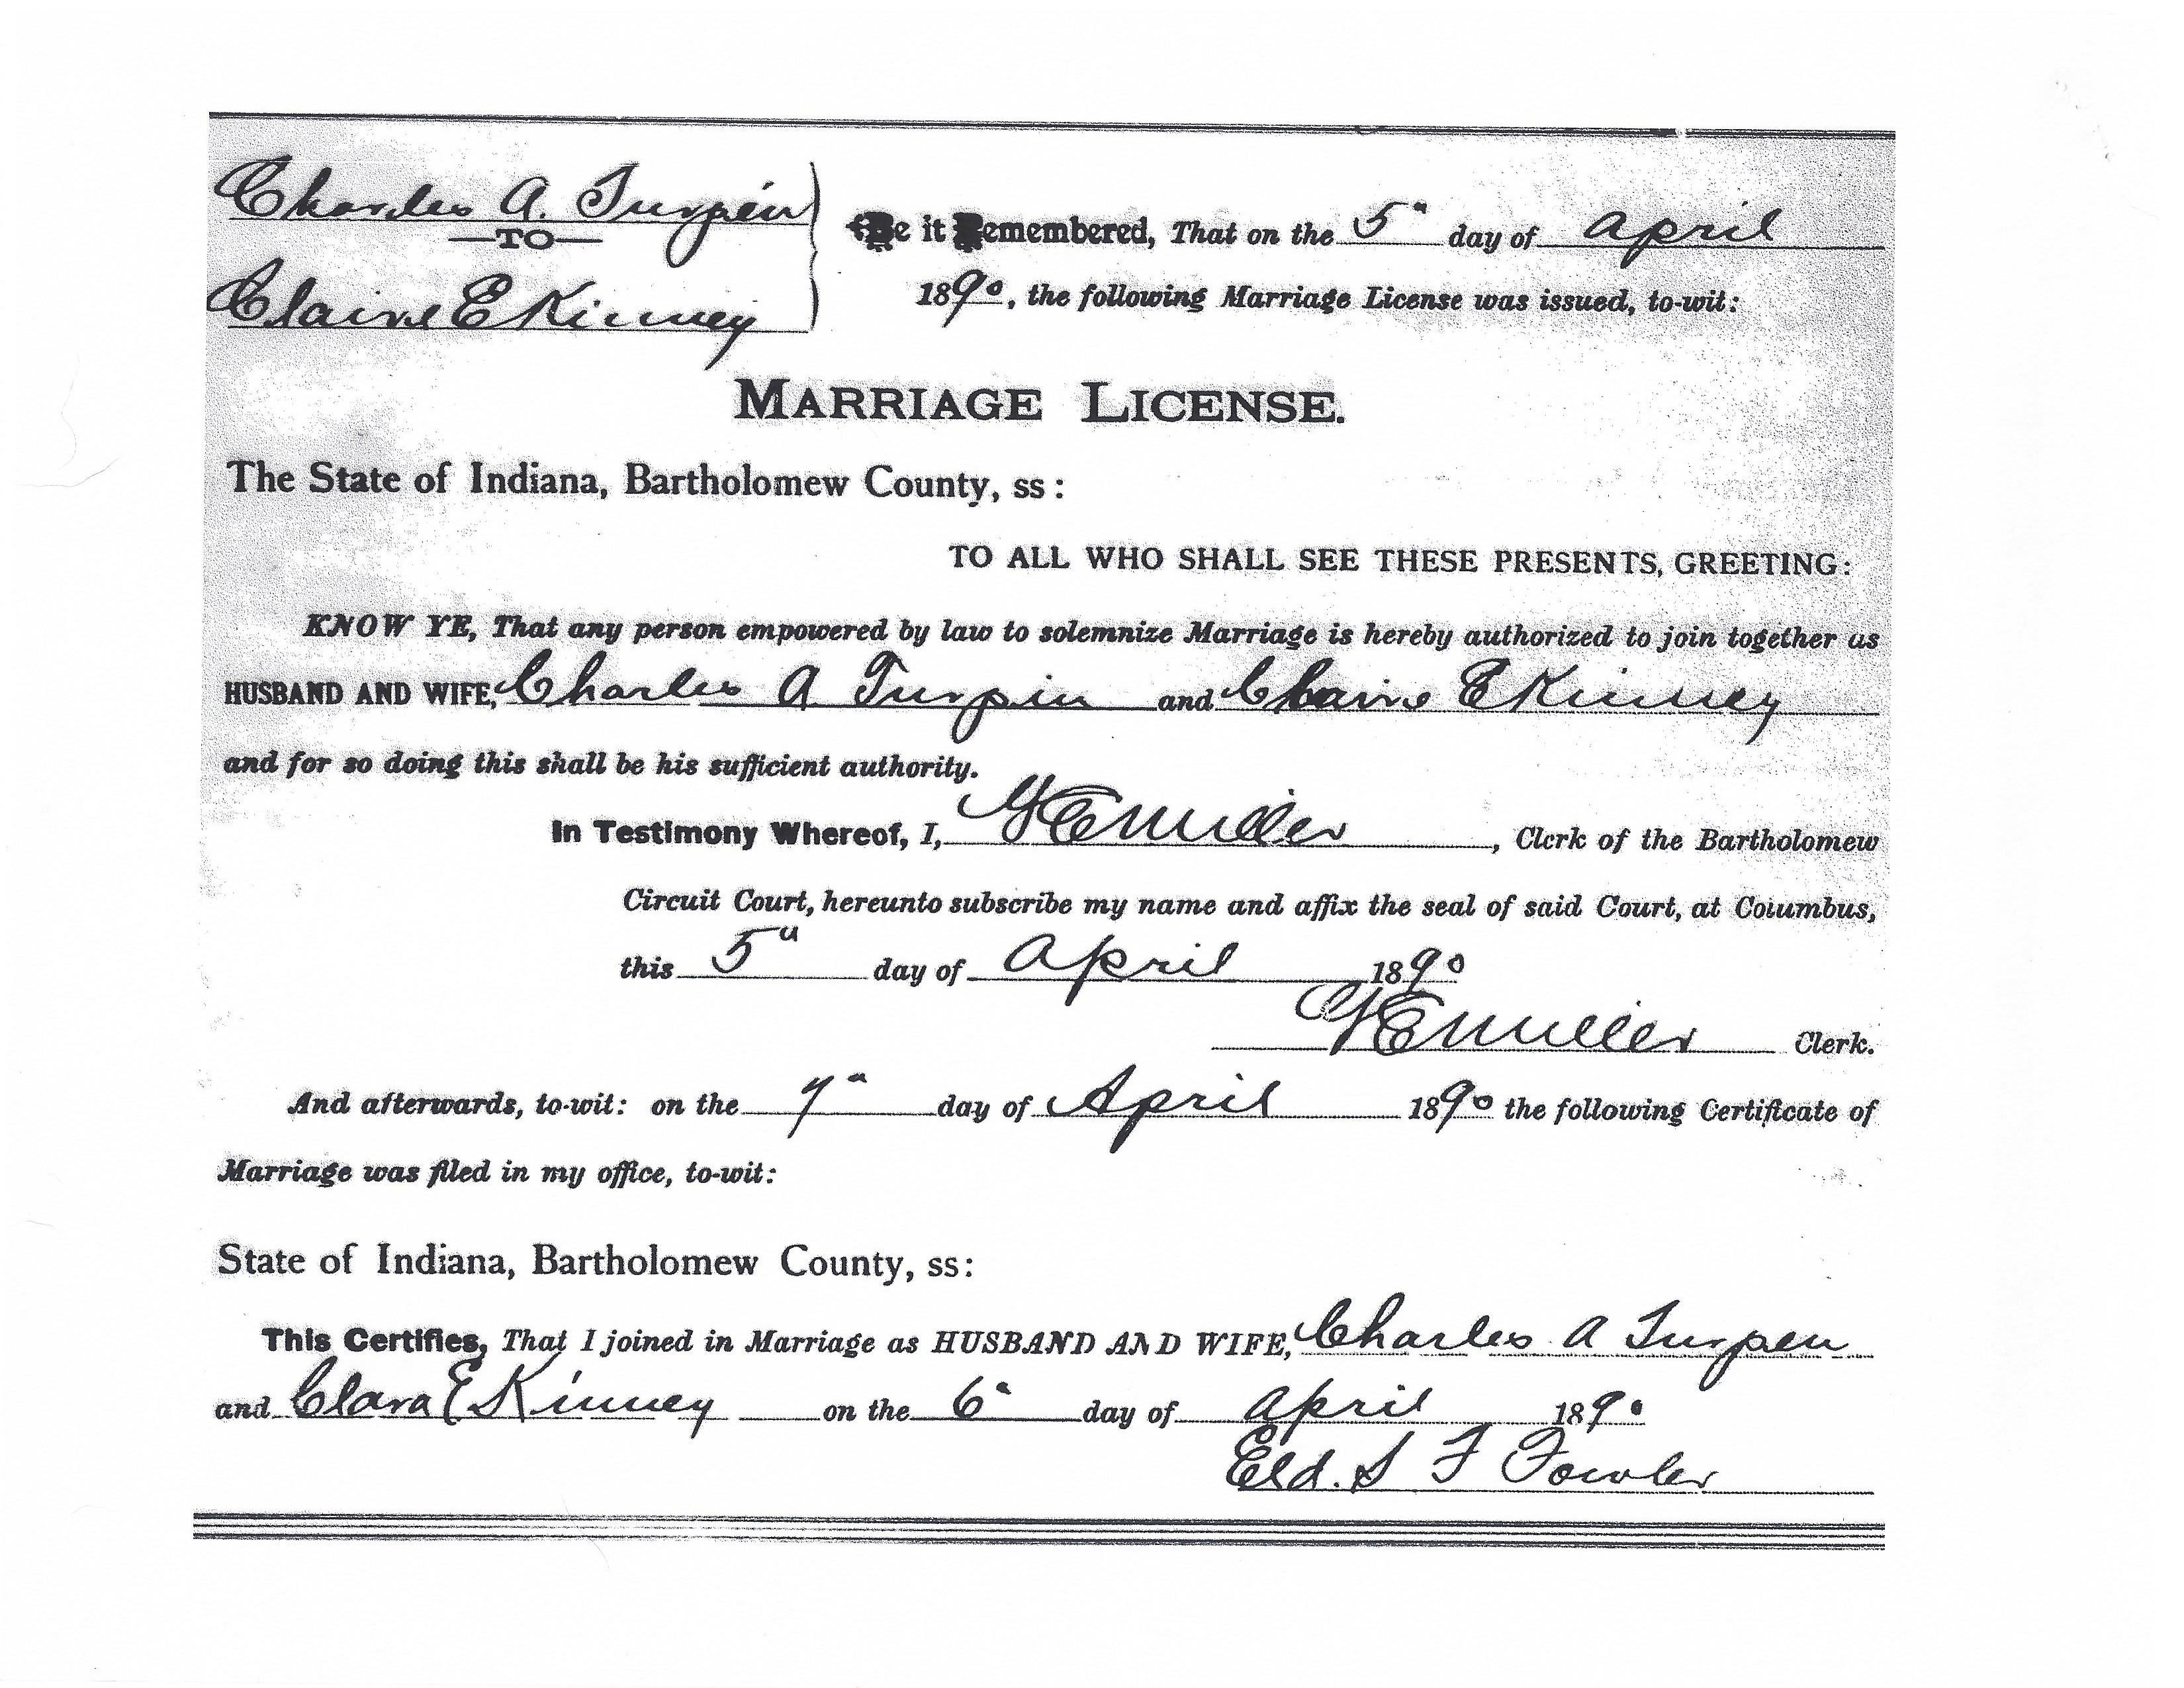 Charles A. Turpin
—TO—
Claire E Kinney
Be it Remembered, That on the 5" day of April
1890, the following Marriage License was issued, to-wit:
MARRIAGE LICENSE.
The State of Indiana, Bartholomew County, ss:
TO ALL WHO SHALL SEE THESE PRESENTS, GREETING:
KNOW YE, That any person empowered by law to solemnize Marriage is hereby authorized to join together as
HUSBAND AND WIFE, Charles A Turpin and Claire E Kinney
and for so doing this shall be his sufficient authority.
In Testimony Whereof, I, G E Miller, Clerk of the Bartholomew
Circuit Court, hereunto subscribe my name and affix the seal of said Court, at Columbus,
this 5" day of April 1890
G E Miller Clerk.
And afterwards, to-wit: on the 7" day of April 1890 the following Certificate of
Marriage was filed in my office, to-wit:
State of Indiana, Bartholomew County, ss:
This Certifies, That I joined in Marriage as HUSBAND AND WIFE, Charles A Turpen
and Clara E Kinney on the 6" day of April 1890
Eld. S F Fowler